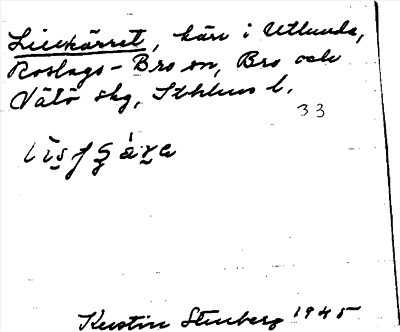 Lieckärret, kärr i Utlunda,
Roslags-Bro sn, Bro och
Vätö skg, Sthlms l.
33
Kerstin Stenberg 1945